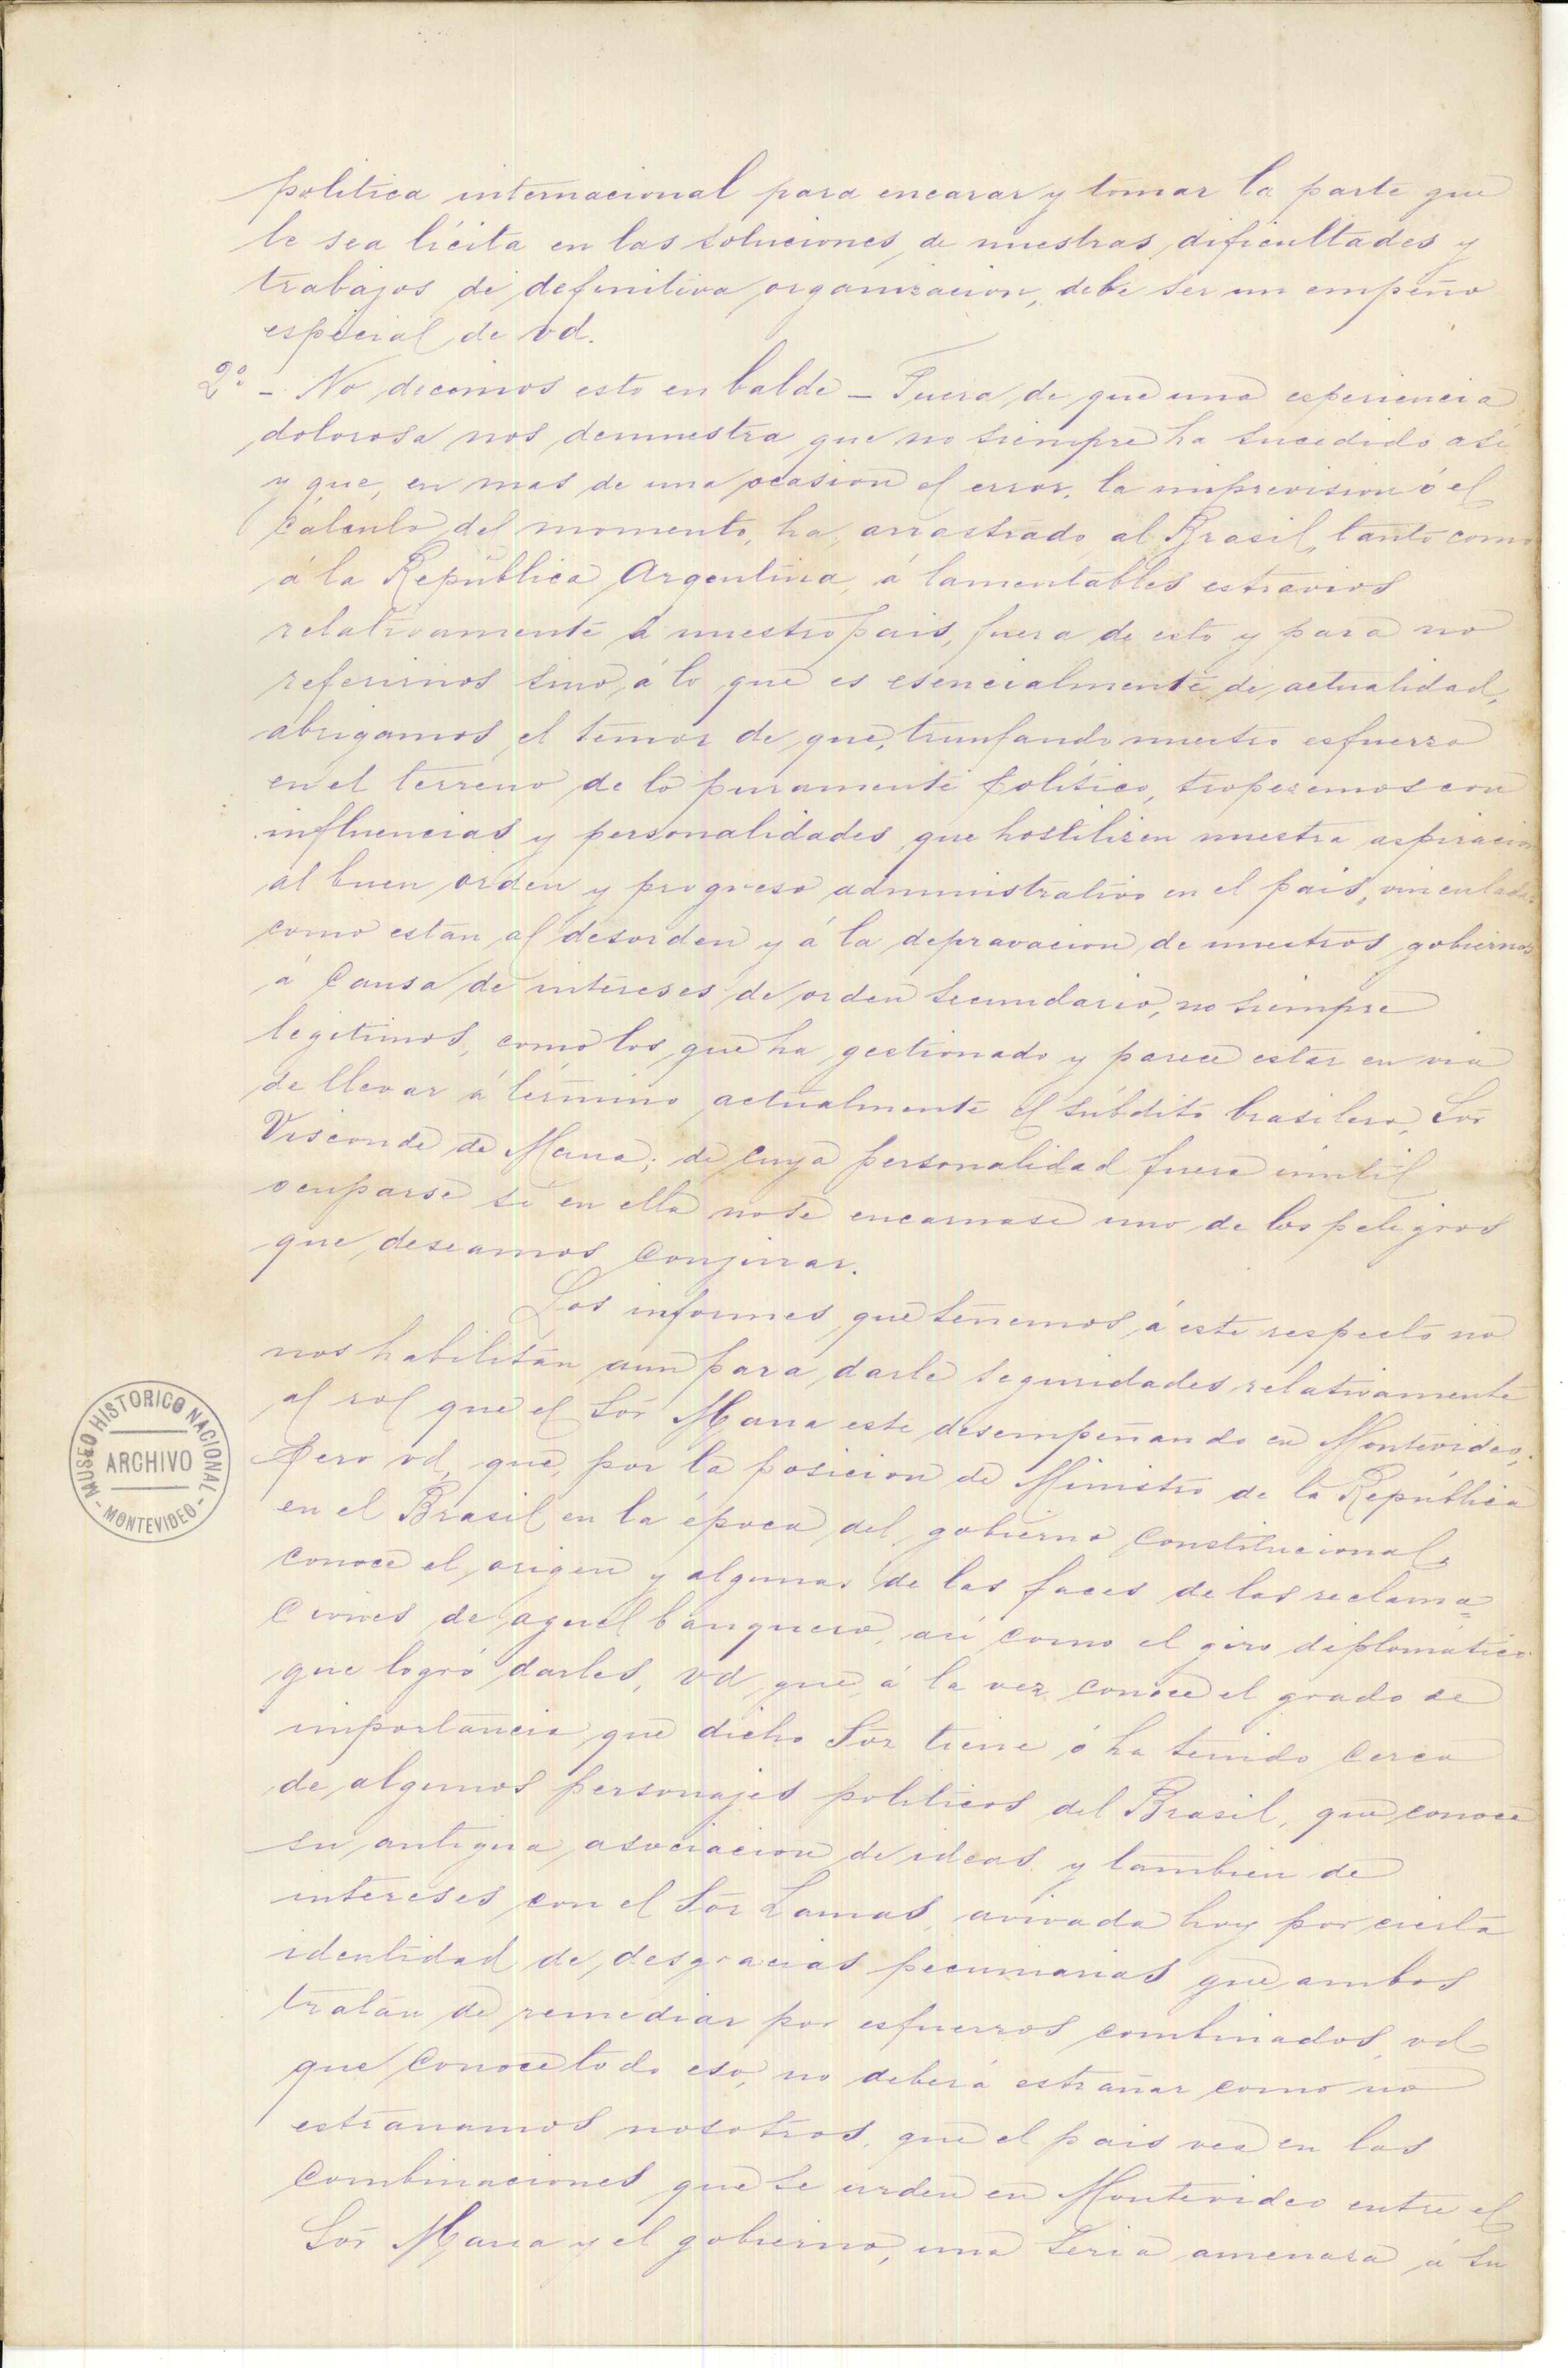 politica internacional para encarar y tomar la parte que
le sea lícita en las soluciones de nuestras dificultades y
trabajos de definitiva organizacion, debe ser un empeño
especial de vd.
2º - No decimos esto en balde - Fuera de que una esperiencia
dolorosa nos demuestra que no siempre ha sucedido así
y que, en mas de una ocasion el error, la imprevision ó el
cálculo del momento, ha arrastrado al Brasil, tanto como
á la República Argentina, á lamentables estravios
relativamente á nuestro pais, fuera de esto y para no
referirnos sino á lo que es esencialmente de actualidad,
abrigamos el temor de que, triunfando nuestro esfuerzo
en el terreno de lo puramente político, tropezemos con
influencias y personalidades que hostilizen nuestra aspiracion
al buen orden y progreso administrativo en el pais, vinculadas
como están al desorden y á la depravacion de nuestros gobiernos
á causa de intereses de orden secundario, no siempre
legitimos, como los que ha gestionado y parece estar en via
de llevar á término actualmente el súbdito brasilero, Sor
Visconde de Maua; de cuya personalidad fuera inutil
ocuparse si en ella no se encarnase uno de los peligros
que deseamos conjurar.
Los informes que tenemos á este respecto no
nos habilitan aun para darle seguridades relativamente
al rol que el Sor Maua este desempeñando en Montevideo;
Pero vd, que, por la posicion de Ministro de la República
en el Brasil en la época del gobierno constitucional,
conoce el origen y algunas de las faces de las reclama=
ciones de aquel banquero, asi como el giro diplomático
que logró darles, vd que á la vez conoce el grado de
importancia que dicho Sor tiene ó ha tenido cerca
de algunos personajes politicos del Brasil, que conoce
su antigua asociacion de ideas y tambien de
intereses con el Sor Lamas, avivada hoy por cierta
identidad de desgracias pecuniarias que ambos
tratan de remediar por esfuerzos combinados, vd
que conoce todo eso, no deberá estrañar como no
estrañamos nosotros, que el pais vea en las
combinaciones que se urden en Montevideo entre el
Sor Maua y el gobierno, una séria amenaza á su
MUSEO HISTORICO NACIONAL
ARCHIVO
- MONTEVIDEO -